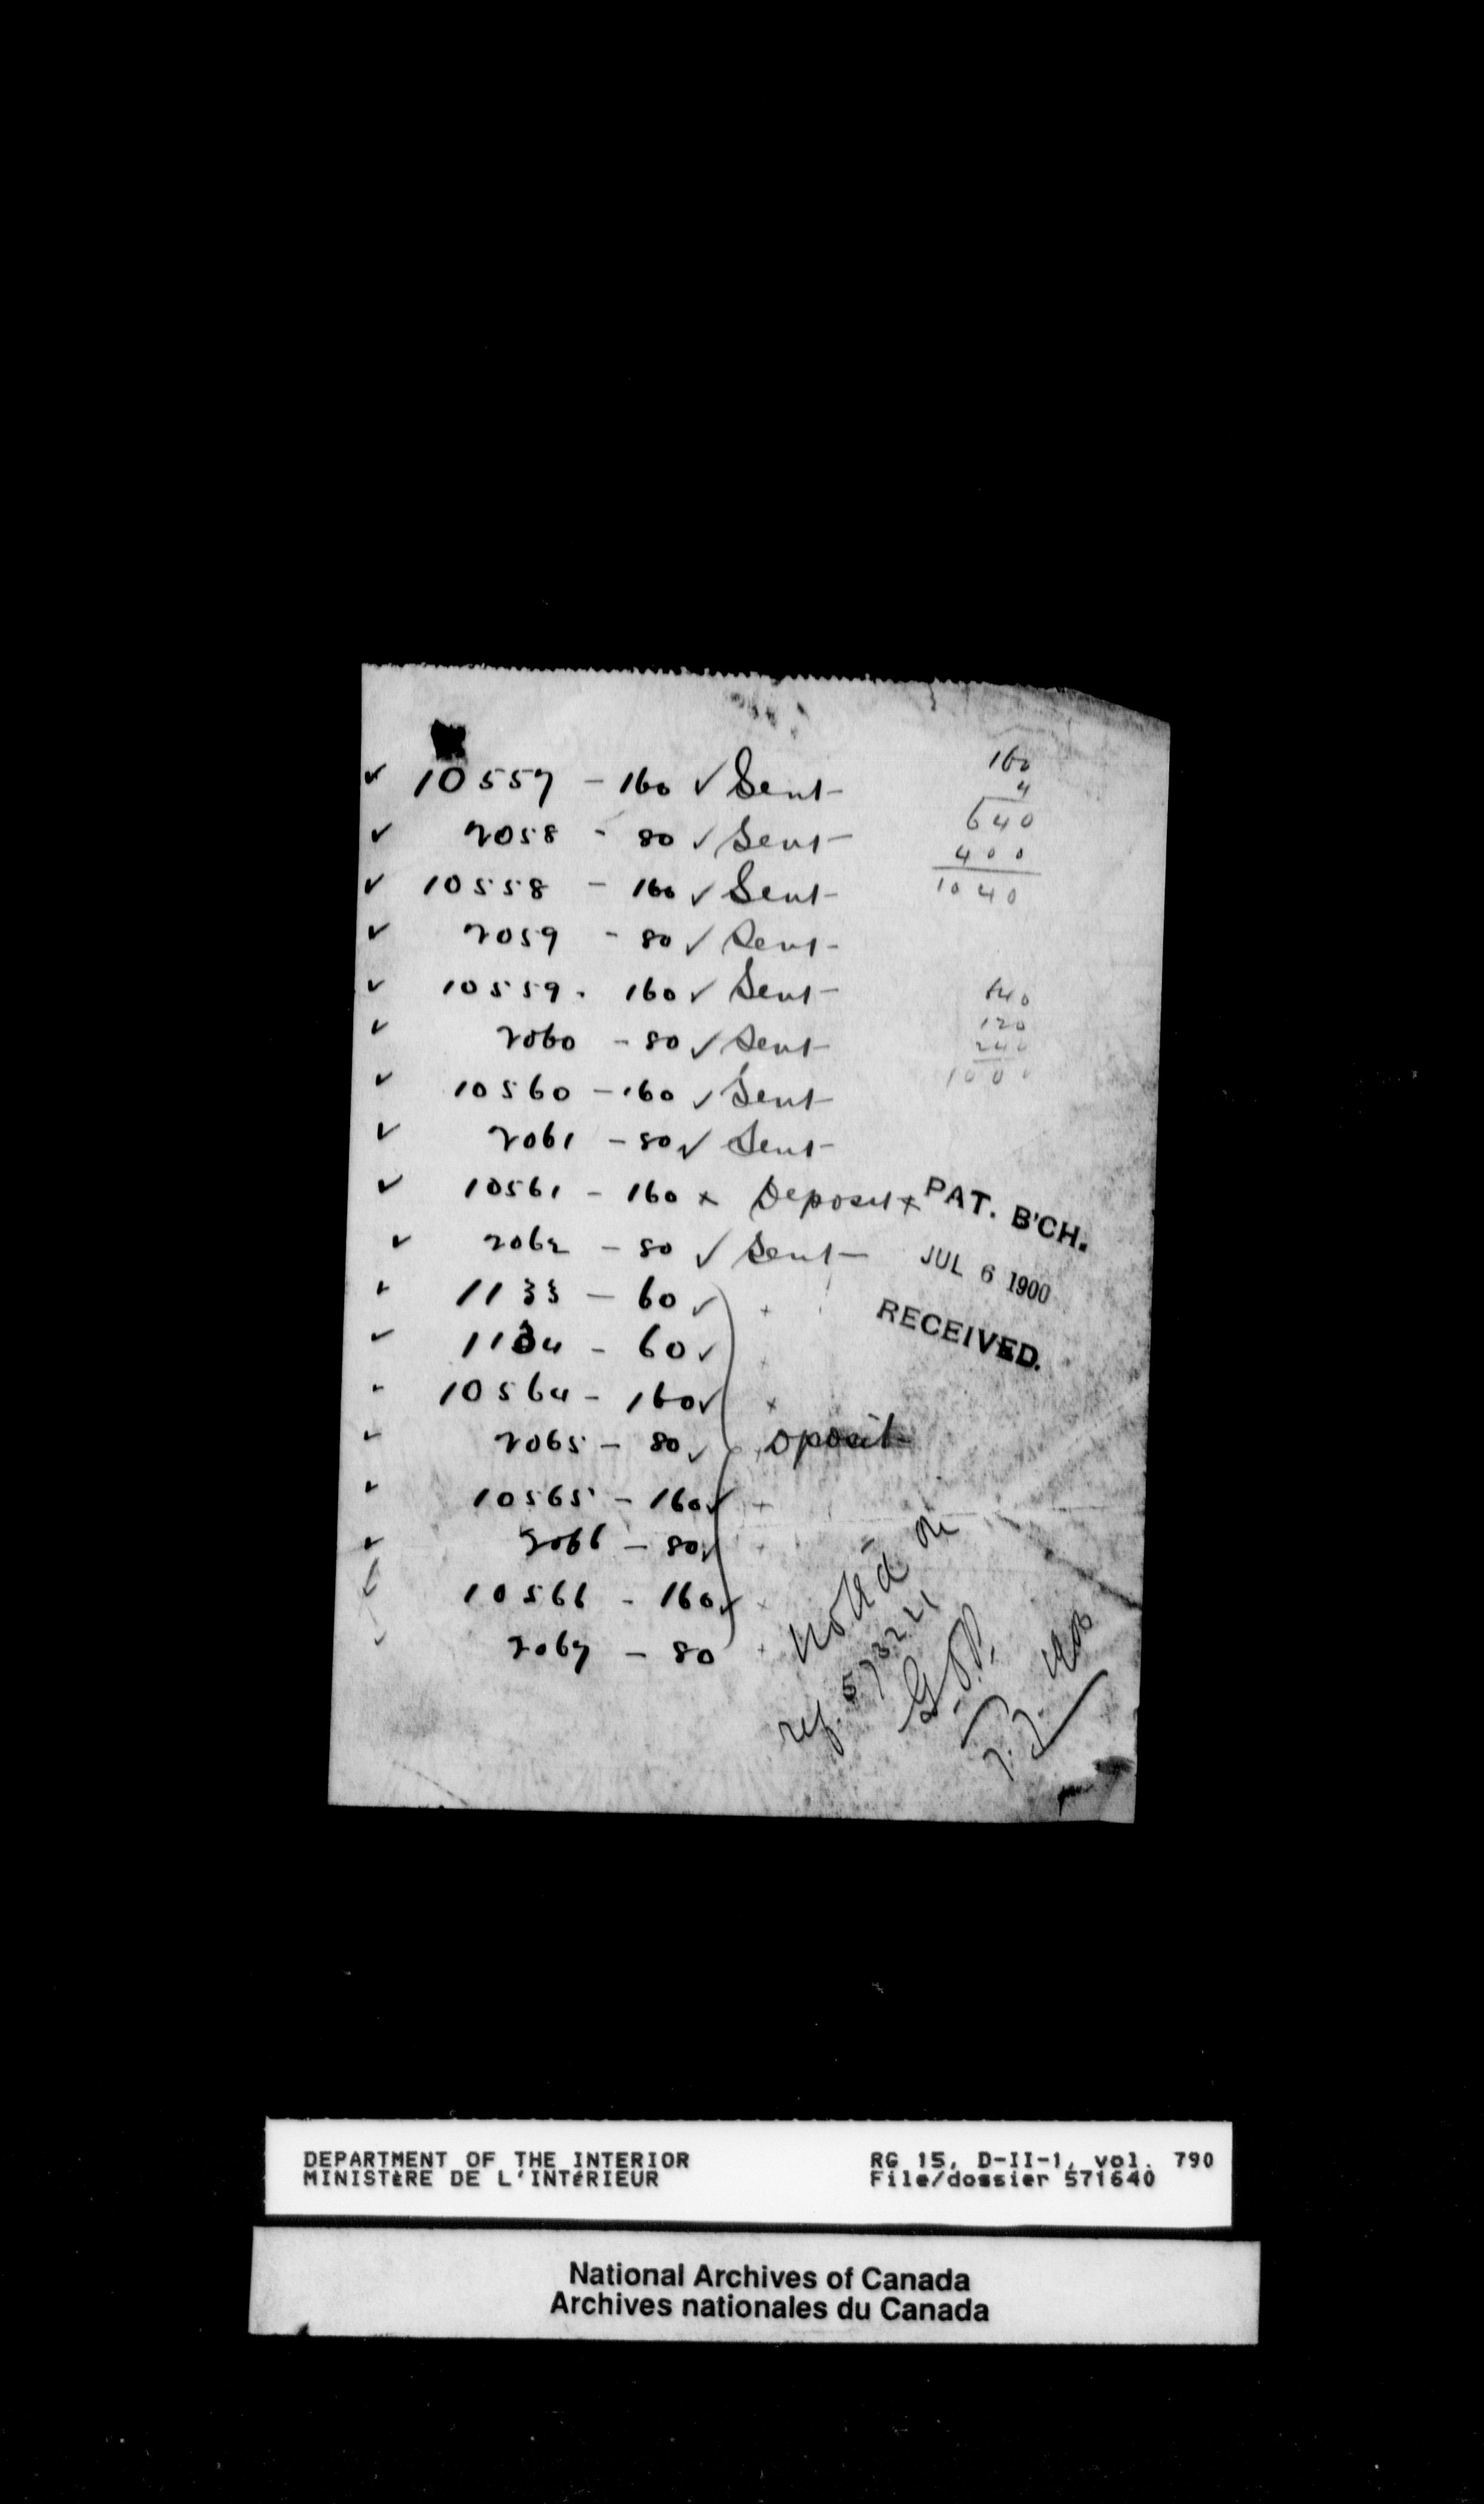 ✓ 10557 - 160 ✓ Sent
✓ 2058 - 80 ✓ Sent
✓ 10558 - 160 ✓ Sent
✓ 2059 - 80 ✓ Sent
✓ 10559 . 160 ✓ Sent
✓ 2060 - 80 ✓ Sent
✓ 10560 - 160 ✓ Sent
✓ 2061 - 80 ✓ Sent
✓ 10561 - 160 x Deposit x
✓ 2062 - 80 ✓ Sent
✓ 1133 - 60 ✓
✓ 1134 - 60 ✓
10564 - 160 ✓ x
✓ 2065 - 80 ✓ Dposit
✓ 10565 - 160 ✓ +
✓ 2066 - 80 ✓
✓ 10566 - 160 ✓ x
✓ 2067 - 80
160
4
640
400
1040
640
120
240
1000
PAT. B'CH.
JUL 6 1900
RECEIVED.
noted on
ref. 573221
DEPARTMENT OF THE INTERIOR
MINISTÈRE DE L'INTÉRIEUR
RG 15, D-II-1, vol. 790
File/dossier 571640
National Archives of Canada
Archives nationales du Canada